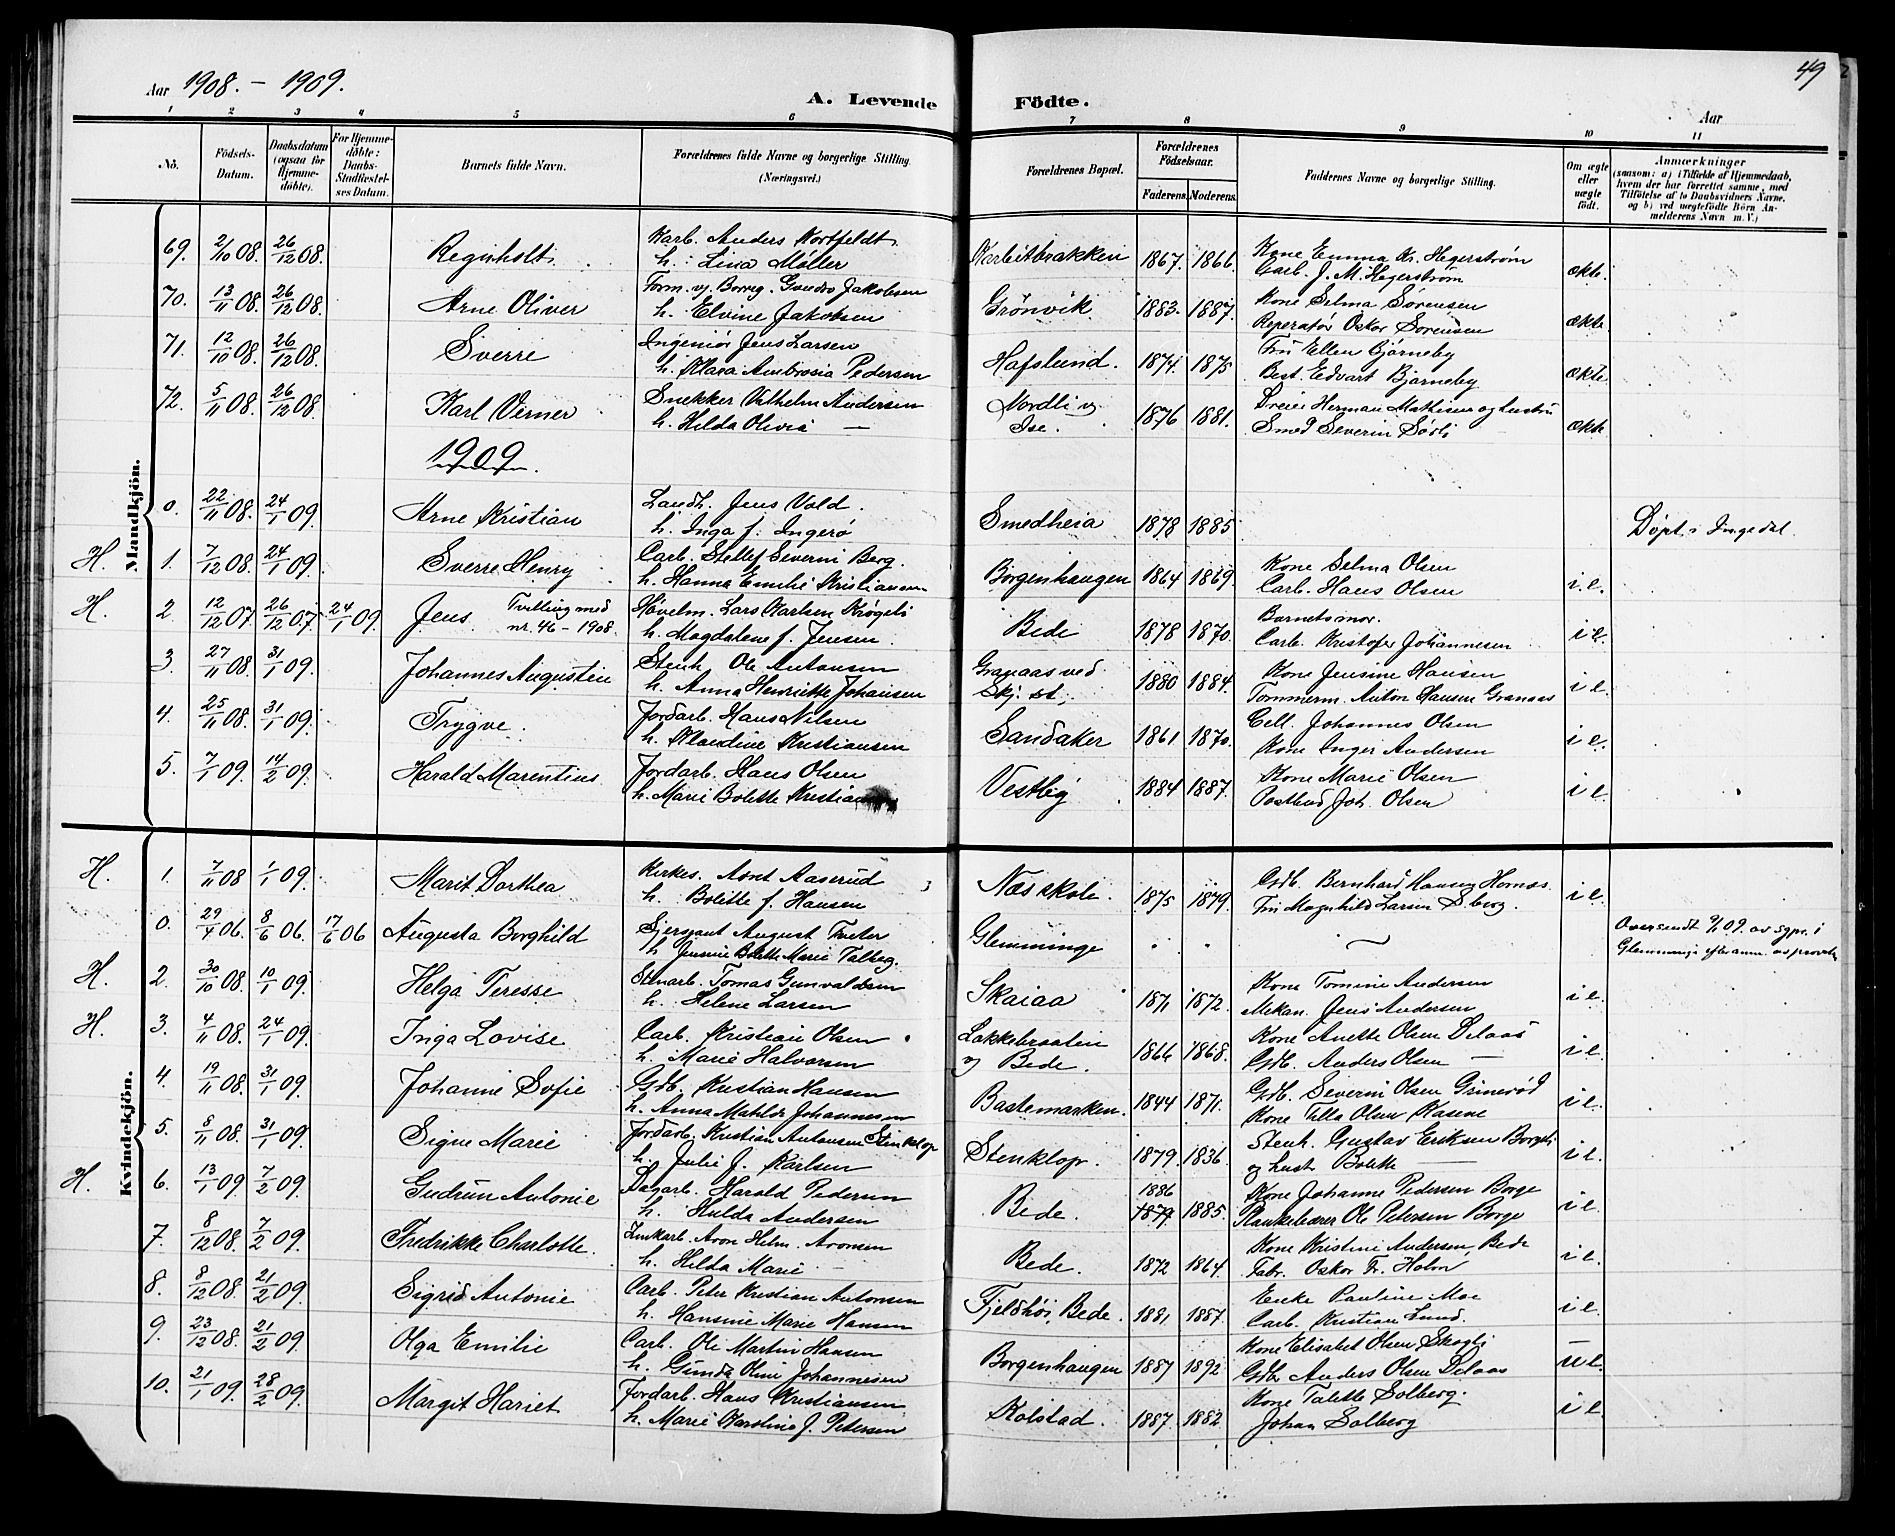 49
Aar 1908. - 1909.
A. Levende Födte.
Aar
1 2 3 4 5 6 7 8 9 10 11
No.
Födsels-Datum.
Daabsdatum (ogsaa for Hjemmedöbte).
For Hjemmedöbte: Daabs-Stadfæstelses Datum.
Barnets fulde Navn.
Forældrenes fulde Navne og borgerlige Stilling. (Næringsvei.)
Forældrenes Bopæl.
Forældrenes Födselsaar.
Faderens. Moderens.
Faddernes Navne og borgerlige Stilling.
Om ægte eller uægte födt.
Anmærkninger
(saasom: a) i Tilfælde af Hjemmedaab, hvem der har forrettet samme, med Tilföielse af to Daabsvidners Navne, og b) ved uægtefödte Börn Anmelderens Navn m. V.)
Mandkjön.
69. 2/10 08. 26/12 08. Reginholt Karb. Anders Kortfeldt Karbeitbrakken 1867. 1866. Kone Emma Kr. Hegerstrøm ækte
h. Lina Møller Garb. J. M. Hegerstrøm
70. 13/11 08. 26/12 08. Arne Oliver Form. v. Borreg. Gundro Jakobsen Grönvik 1883. 1887. Kone Selma Sörensen ækte
h. Elvine Jakobsen Reperatör Oskar Sörensen
71. 12/10 08. 26/12 08. Sverre Ingeniör Jens Larsen Hafslund. 1874. 1875 Fru Ellen Bjørneby ækte
h. Klara Ambrosia Pedersen Best. Edvart Bjørneby
72. 5/11 08. 26/12 08. Karl Verner Snekker Vilhelm Andersen Nordli v. 1876 1881. Dreier Herman Mathisen og hustru ækte
h. Hilda Olivia — Ise. Smed Severin Sørli
1909.
0. 22/11 08. 24/1 09. Arne Kristian Landh. Jens Vold. Smedheia 1878 1885 Döpt i Ingedal.
h. Inga f. Ingerö
H. 1. 7/12 08. 24/1 09. Sverre Henry Carb. Stellef Severin Berg. Borgenhaugen 1864 1869. Kone Selma Olsen i e.
h. Hanna Emilie Kristiansen Carb. Hans Olsen
H. 2 12/12 07. 26/12 07. 24/1 09. Jens Tvilling med nr. 46 - 1908. Hövelm. Lars Karlsen Krøgeli Bede 1878 1870. Barnets mor. i e.
h. Magdalene f. Jensen. Carb. Kristofer Johannesen
3. 27/11 08. 31/1 09. Johannes Augustin Stenh. Ole Antonsen Granaas ved 1880 1884. Kone Jensine Hansen i e.
h. Anna Henriette Johansen Skj. st. Tømmerm. Anton Hansen Granaas
4. 25/11 08. 31/1 09. Trygve. Jordarb. Hans Nilsen Sandaker 1861 1870. Cell. Johannes Olsen i e.
h. Klaudine Kristiansen Kone Inger Andersen
5. 7/1 09. 14/2 09. Harald Marentius Jordarb. Hans Olsen Vestby 1884 1887. Kone Marie Olsen i e.
h. Marie Bolette Kristian Postbud Joh. Olsen
Kvindekjön.
H. 1. 7/11 08 1/1 09. Marit Dorthea Kirkes. Arnt Aaserud Næs skole. 1875 1879. Gdb. Bernhard Hansen Hornæs. i e.
h. Bolette f. Hansen Fru Magnhild Larsen
0. 29/4 06. 8/6 06. 17/6 06 Augusta Borghild Sjersjant August Tveter Glemminge Oversendt 09. av sgpr. i
h. Jensine Bolette Marie Talberg. Glemminge efter anm. av provsten
H. 2. 30/10 08. 10/1 09. Helga Teresse Stenarb. Tomas Gunvaldsen Skaiaa 1871 1872. Kone Tomine Andersen i e.
h. Helene Larsen Mekan. Jens Andersen
H. 3. 4/11 08. 24/1 09. Inga Lovise Carb. Kristian Olsen Løkkebraaten 1866 1868. Kone Anette Olsen Delaas i e.
h. Marie Halvorsen v. Bede. Gdb. Anders Olsen —
4. 19/11 08. 31/1 09. Johanne Sofie Gdb. Kristian Hansen Bastemarken. 1844 1871. Gdb. Severin Olsen Grimerød i e.
h. Anna Matilde Johannesen Kone Tilla Olsen Kasene
5. 8/11 08. 31/1 09. Signe Marie Jordarb. Kristian Antonsen Stenklop Stenklop. 1879. 1836. Stenh. Gustav Eriksen Borgeli i e.
h. Julie J. Karlsen og hust. Bolette —
H. 6. 13/1 09. 7/2 09. Gudrun Antonie Dagarb. Harald Pedersen Bede. 1886 1879. 1885. Kone Johanne Pedersen Borge i e.
h. Hulda Andersen Plankebærer Ole Petersen Borge
7. 8/12 08. 7/2 09. Fredrikke Charlotte. Zinkarb. Aron Helm. Aronsen Bede. 1872 1864. Kone Kristine Andersen, Bede i e.
h. Hilda Marie — Fabr. Oskar Fr. Holm
8. 8/12 08. 21/2 09. Sigrid Antonie Carb. Peter Kristian Antonsen Fjeldhöi, Bede. 1881 1887. Enke Pauline Moe i e.
h. Hansine Marie Hansen Carb. Kristian Lund.
9. 23/12 08. 21/2 09. Olga Emilie Carb. Ole Martin Hansen Borgenhaugen 1887 1892 Kone Elisabet Olsen Skogli u e.
h. Gunda Oline Johannesen Gdb. Anders Olsen Delaas
10. 21/1 09. 28/2 09. Margit Hariet Jordarb. Hans Kristiansen Kolstad. 1887. 1882. Kone Talette Solberg. i e.
h. Marie Karoline J. Petersen Johan Solberg